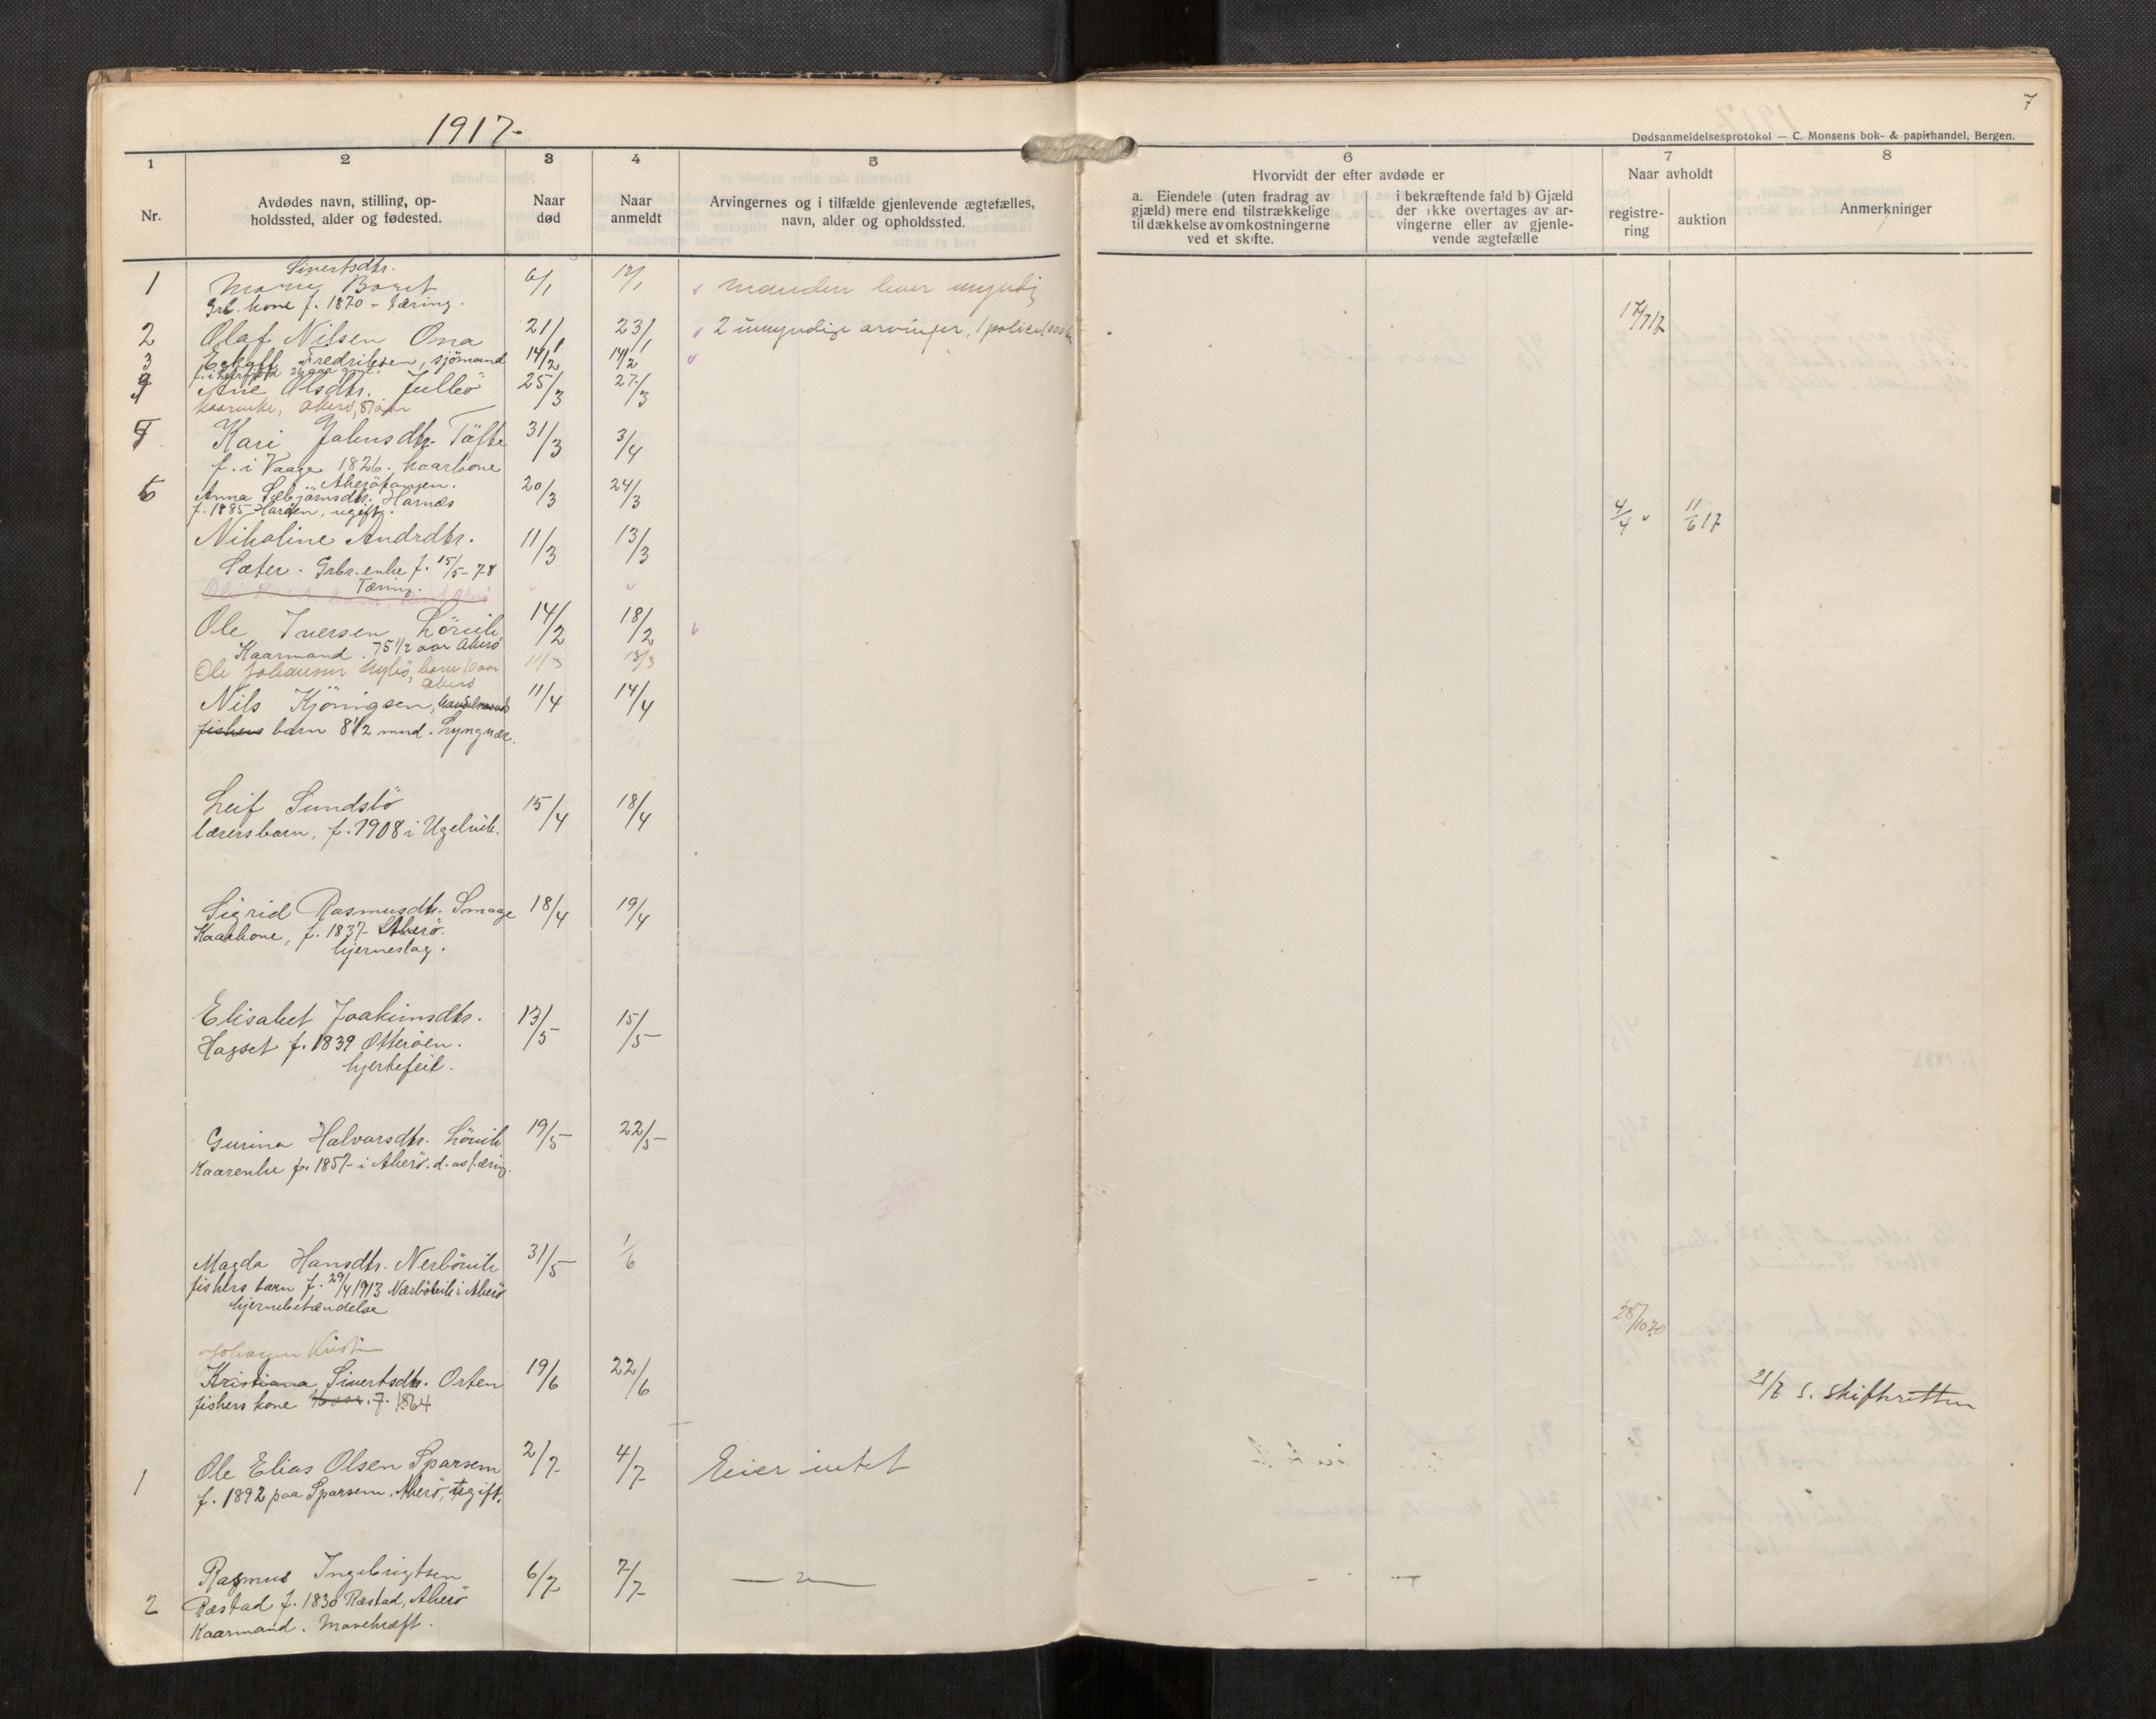 1917
7
Dødsanmeldelsesprotokol — C. Monsens bok- & papirhandel, Bergen.
1
2
3
4
5
6
7
8
Nr.
Avdødes navn, stilling, op-
holdssted, alder og fødested.
Naar
død
Naar
anmeldt
Arvingernes og i tilfælde gjenlevende ægtefælles,
navn, alder og opholdssted.
Hvorvidt der efter avdøde er
a. Eiendele (uten fradrag av
gjæld) mere end tilstrækkelige
til dækkelse av omkostningerne
ved et skifte.
i bekræftende fald b) Gjæld
der ikke overtages av ar-
vingerne eller av gjenle-
vende ægtefælle
Naar avholdt
registre-
ring
auktion
Anmerkninger
Sivertsdtr.
1 Marie Boret 6/1 12/1 manden lever
Grb. kone f. 1870 - Tæring.
17/7 17
2 Olaf Nilsen Ona 21/1 23/1 2 umyndige arvinger, 1 police
3 Fredriksen, sjömand 14/2 14/2
4 Ane Olsdtr. Julbö 25/3 27/3
Akerö, 81 aar
5 Kari Johnsdtr. Töfte 31/3 3/4
f. i Vaage 1826. kaarkone
6 Anna Sæbjörnsdtr. Harnes 20/3 24/3
f. 1885 Haröen, ugift. 4/4 11/6 17
Nikoline Andrdtr. 11/3 13/3
Sæter. Grbr. enke f. 15/5-78
Tæring.
Ole Iversen Lövik 14/2 18/2
Kaarmand. 75 1/2 aar Akerö
Ole Johansen barn 10 aar 11/3 13/3
Akerö
Nils Kjöningsen, 11/4 14/4
fiskers barn 8 1/2 mnd. Lyngvær.
Leif Sundsbö 15/4 18/4
lærersbarn, f. 1908 i Ugelvik.
Sigrid Rasmusdtr. Smage 18/4 19/4
Kaarkone, f. 1837 Akerö.
hjerneslag.
Elisabet Joakimsdtr. 13/5 15/5
Hagset f. 1839 Otteröen.
hjertefeil.
Gurina Halvorsdtr. Lövik 19/5 22/5
Kaarenke f. 1857 i Akerö. d. av tæring.
Magda Hansdtr. Nerbövik 31/5 1/6
fiskers barn f. 29/4 1913 Nærbövik i Akerö
hjernebetændelse
28/10 20
Kristiana Sivertsdtr. Orten 19/6 22/6
fiskers kone f. 1864
21/7 s. skifteretten
1 Ole Elias Olsen Sparsem 2/7 4/7 Eier intet
f. 1892 paa Sparsem. Akerö, ugift.
2 Rasmus Ingebrigtsen 6/7 7/7 — " —
Ræstad f. 1830 Ræstad, Akerö
Kaarmand. Mavekræft.